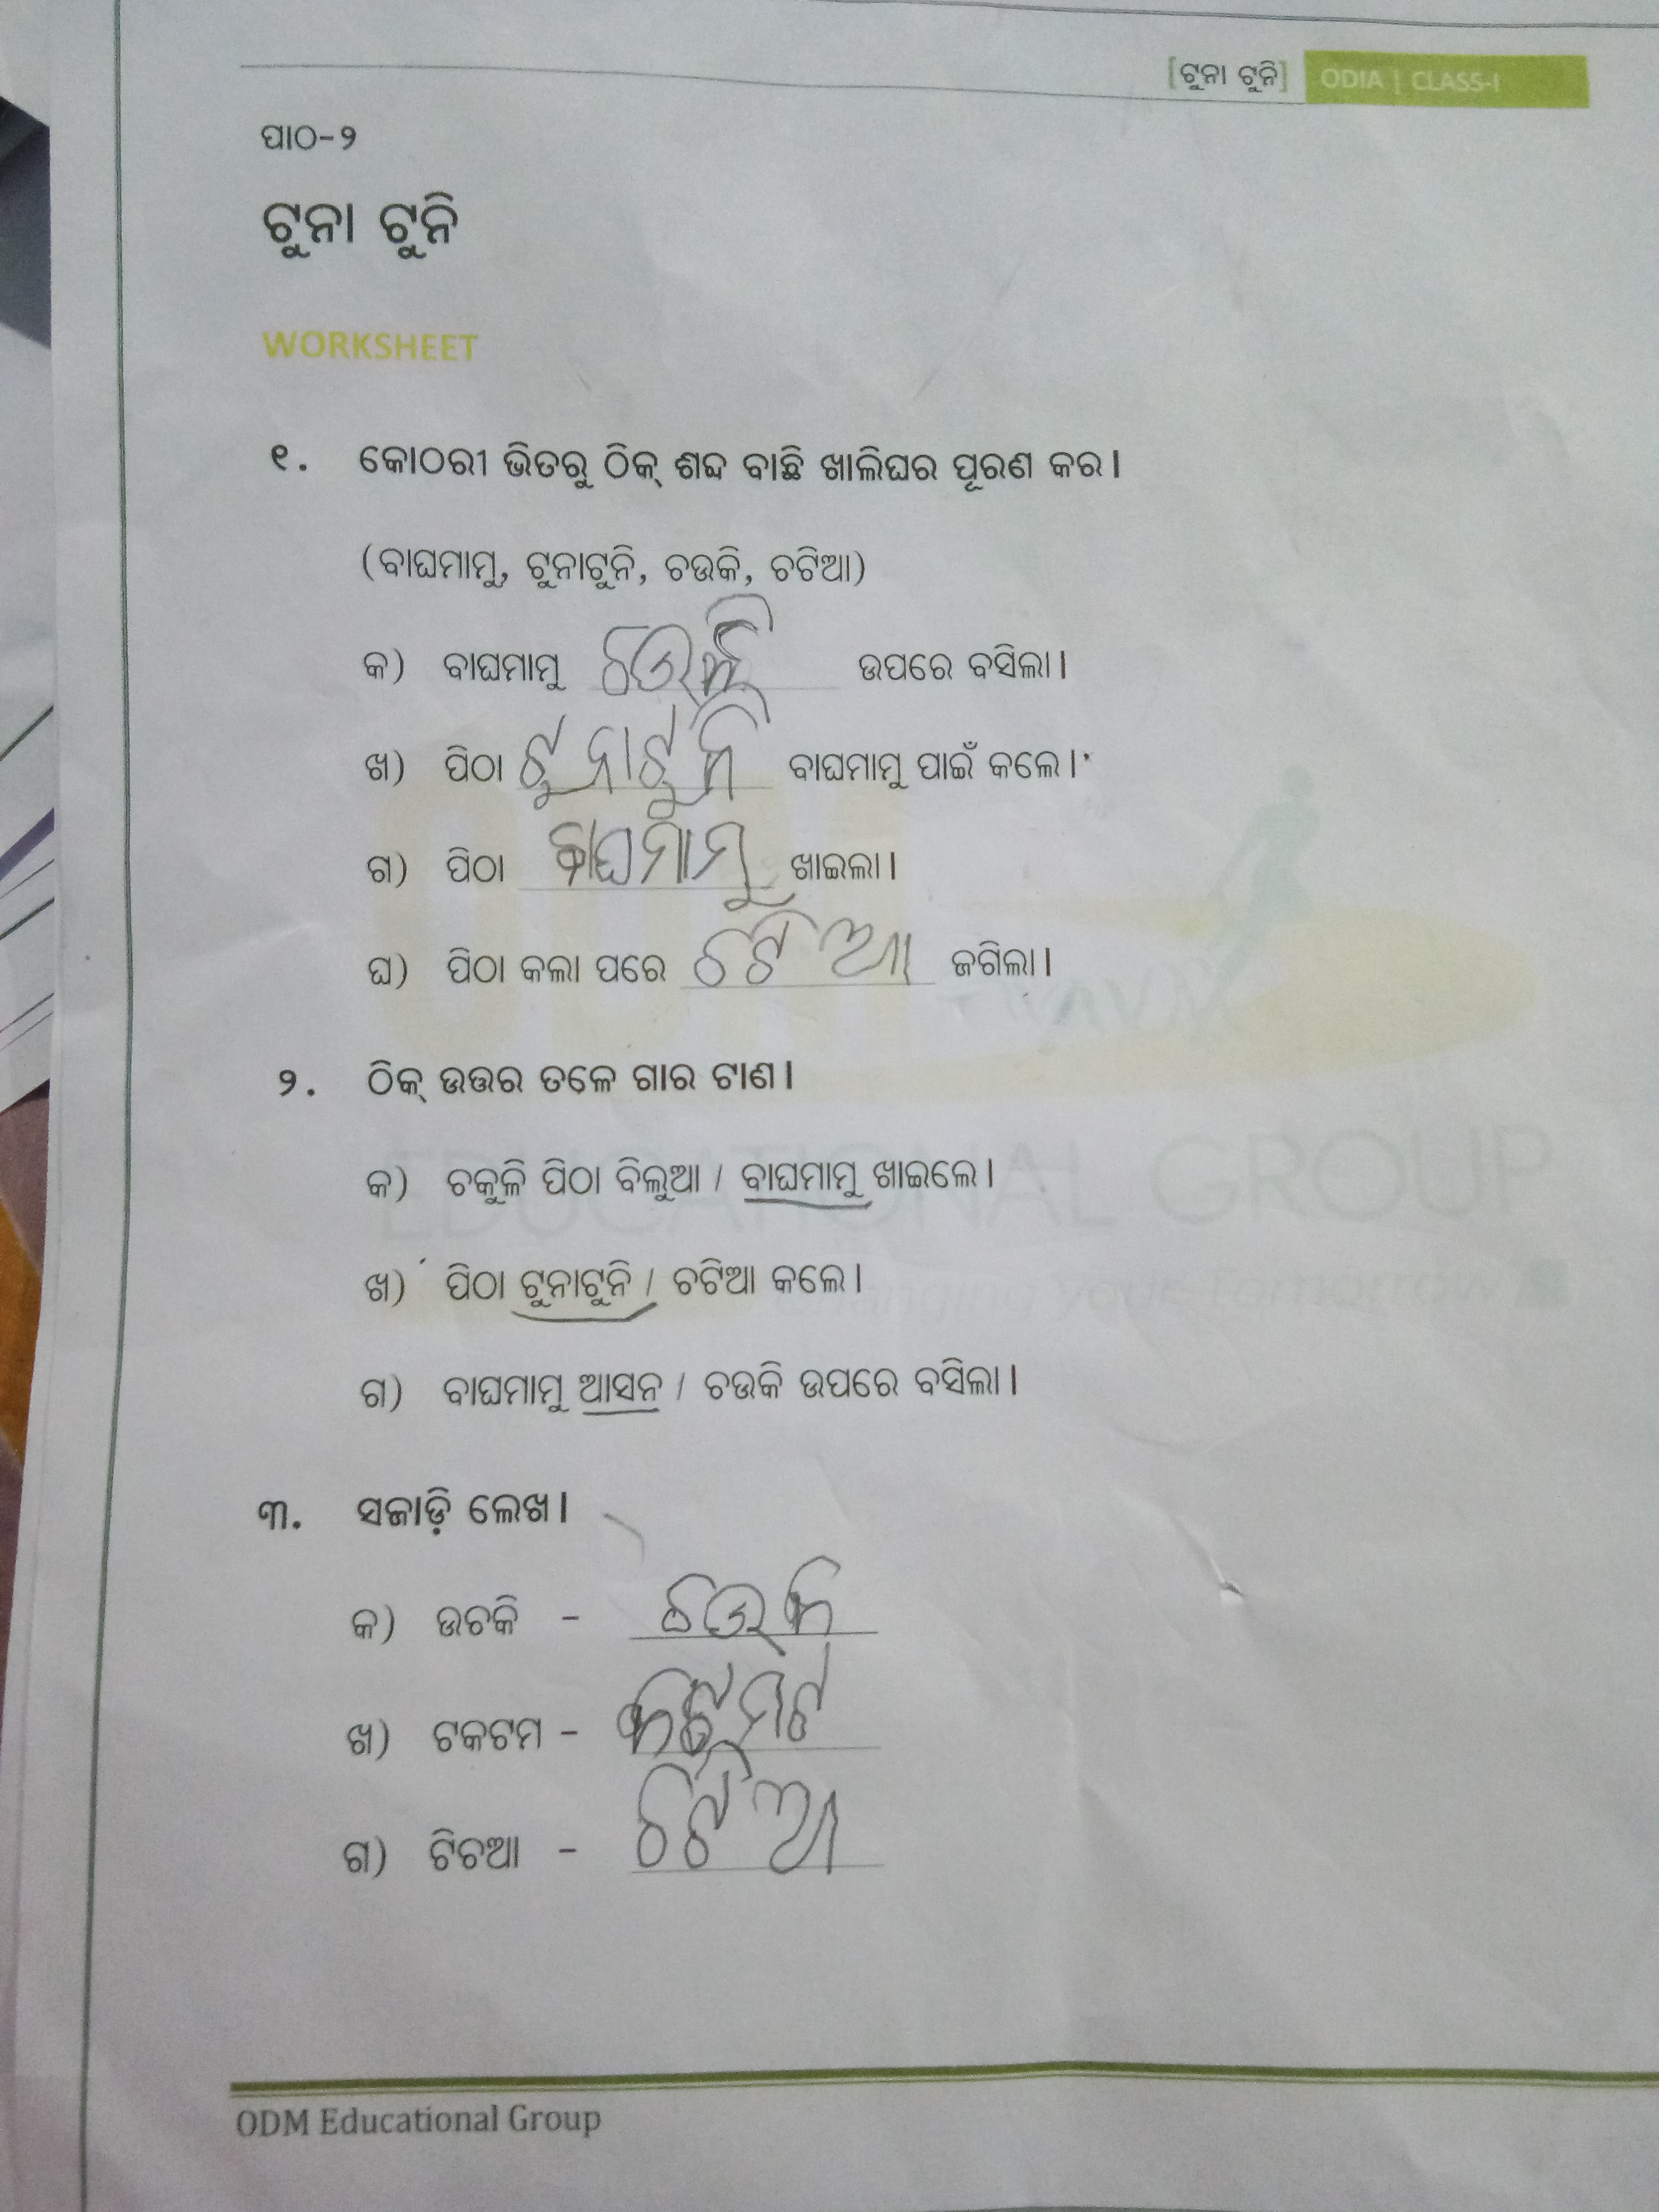 [ଟୁନା ଟୁନି] ODIA | CLASS-I
ପାଠ-୨
ଟୁନା ଟୁନି
WORKSHEET
୧. କୋଠରୀ ଭିତରୁ ଠିକ୍ ଶବ୍ଦ ବାଛି ଖାଲିଘର ପୂରଣ କର।
(ବାଘମାମୁ, ଟୁନାଟୁନି, ଚଉକି, ଚଟିଆ)
କ) ବାଘମାମୁ ଚଉକି ଉପରେ ବସିଲା।
ଖ) ପିଠା ଟୁନାଟୁନି ବାଘମାମୁ ପାଇଁ କଲେ।
ଗ) ପିଠା ବାଘମାମୁ ଖାଇଲା।
ଘ) ପିଠା କଲା ପରେ ଚଟିଆ ଜଗିଲା।
୨. ଠିକ୍ ଉତ୍ତର ତଳେ ଗାର ଟାଣ।
କ) ଚକୁଳି ପିଠା ବିଲୁଆ / ବାଘମାମୁ ଖାଇଲେ।
ଖ) ପିଠା ଟୁନାଟୁନି / ଚଟିଆ କଲେ।
ଗ) ବାଘମାମୁ ଆସନ / ଚଉକି ଉପରେ ବସିଲା।
୩. ସଜାଡ଼ି ଲେଖ।
କ) ଉଚକି - ଚଉକି
ଖ) ଟକଟମ - କଟମଟ
ଗ) ଟିଚଆ - ଚଟିଆ
EDUCATIONAL GROUP
ODM Educational Group